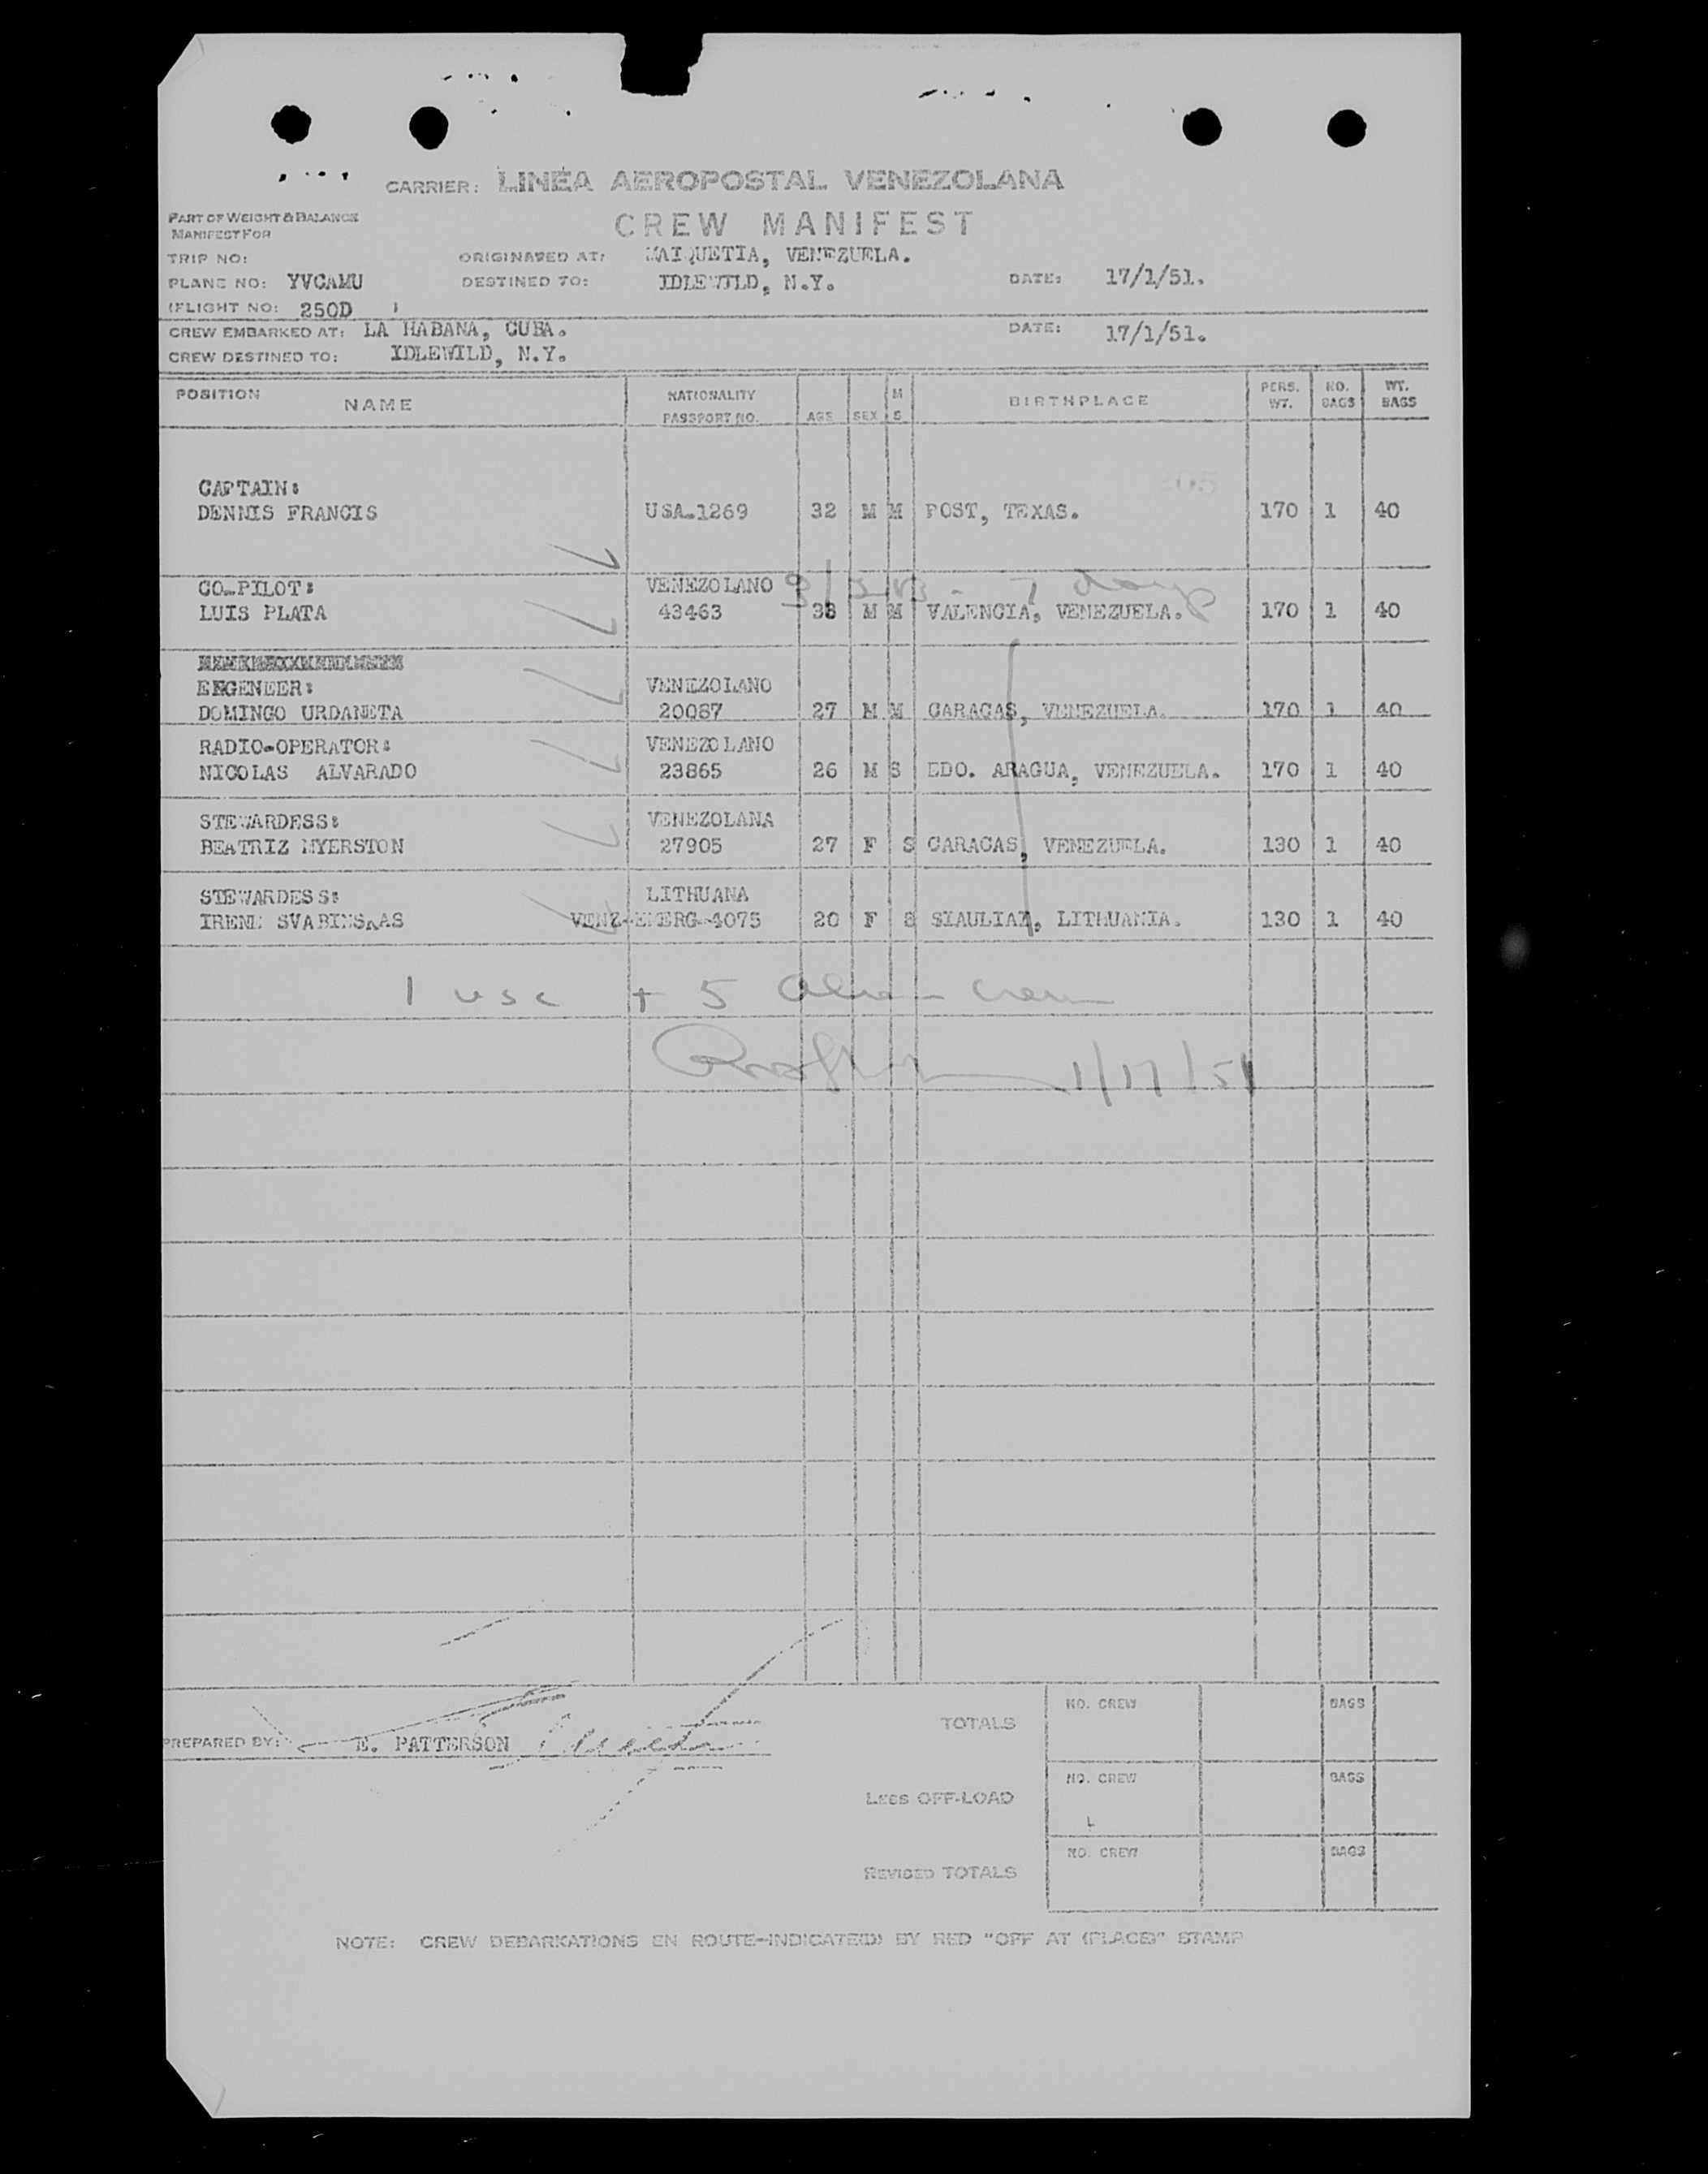 CARRIER: LINEA AEROPOSTAL VENEZOLANA
PART OF WEIGHT & BALANCE
MANIFEST FOR
CREW MANIFEST
TRIP NO: ORIGINATED AT: MAIQUETIA, VENEZUELA.
PLANE NO: YVCAMU DESTINED TO: IDLEWILD, N.Y. DATE: 17/1/51.
(FLIGHT NO: 250D )
CREW EMBARKED AT: LA HABANA, CUBA. DATE: 17/1/51.
CREW DESTINED TO: IDLEWILD, N.Y.
POSITION NAME NATIONALITY PASSPORT NO. AGE SEX M S BIRTHPLACE PERS. WT. NO. BAGS WT. BAGS
CAPTAIN:
DENNIS FRANCIS USA-1269 32 M M POST, TEXAS. 170 1 40
CO-PILOT: VENEZOLANO
7 days
LUIS PLATA 43463 38 M M VALENCIA, VENEZUELA. 170 1 40
ENGENEER: VENEZOLANO
DOMINGO URDANETA 20087 27 M M CARACAS, VENEZUELA. 170 1 40
RADIO-OPERATOR: VENEZOLANO
NICOLAS ALVARADO 23865 26 M S EDO. ARAGUA, VENEZUELA. 170 1 40
STEWARDESS: VENEZOLANA
BEATRIZ MYERSTON 27905 27 F S CARACAS, VENEZUELA. 130 1 40
STEWARDESS: LITHUANA
IRENE VENZ-EMERG-4075 20 F S LITHUANIA. 130 1 40
1 usc + 5 alien crew
1/17/51
TOTALS NO. CREW BAGS
PREPARED BY: E. PATTERSON
LESS OFF-LOAD NO. CREW BAGS
REVISED TOTALS NO. CREW BAGS
NOTE: CREW DEBARKATIONS EN ROUTE-INDICATE(D) BY RED "OFF AT (PLACE)" STAMP